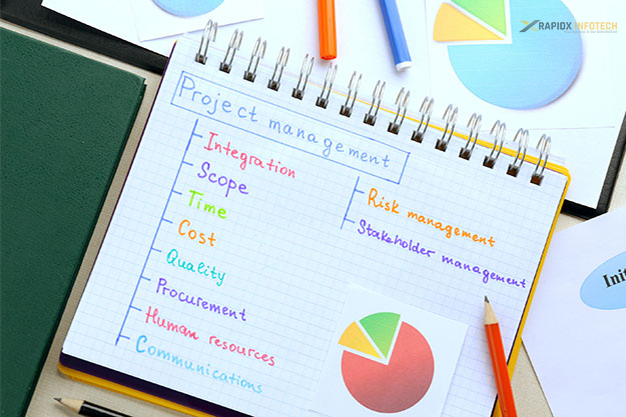 RAPIDX INFOTECH
Project management
Integration
Scope
Time
Cost
Quality
Procurement
Human resources
Communications
Risk management
Stakeholder management
Init